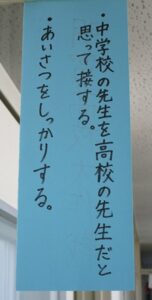 ・中学校の先生を高校の先生だと
思って接する。
・あいさつをしっかりする。